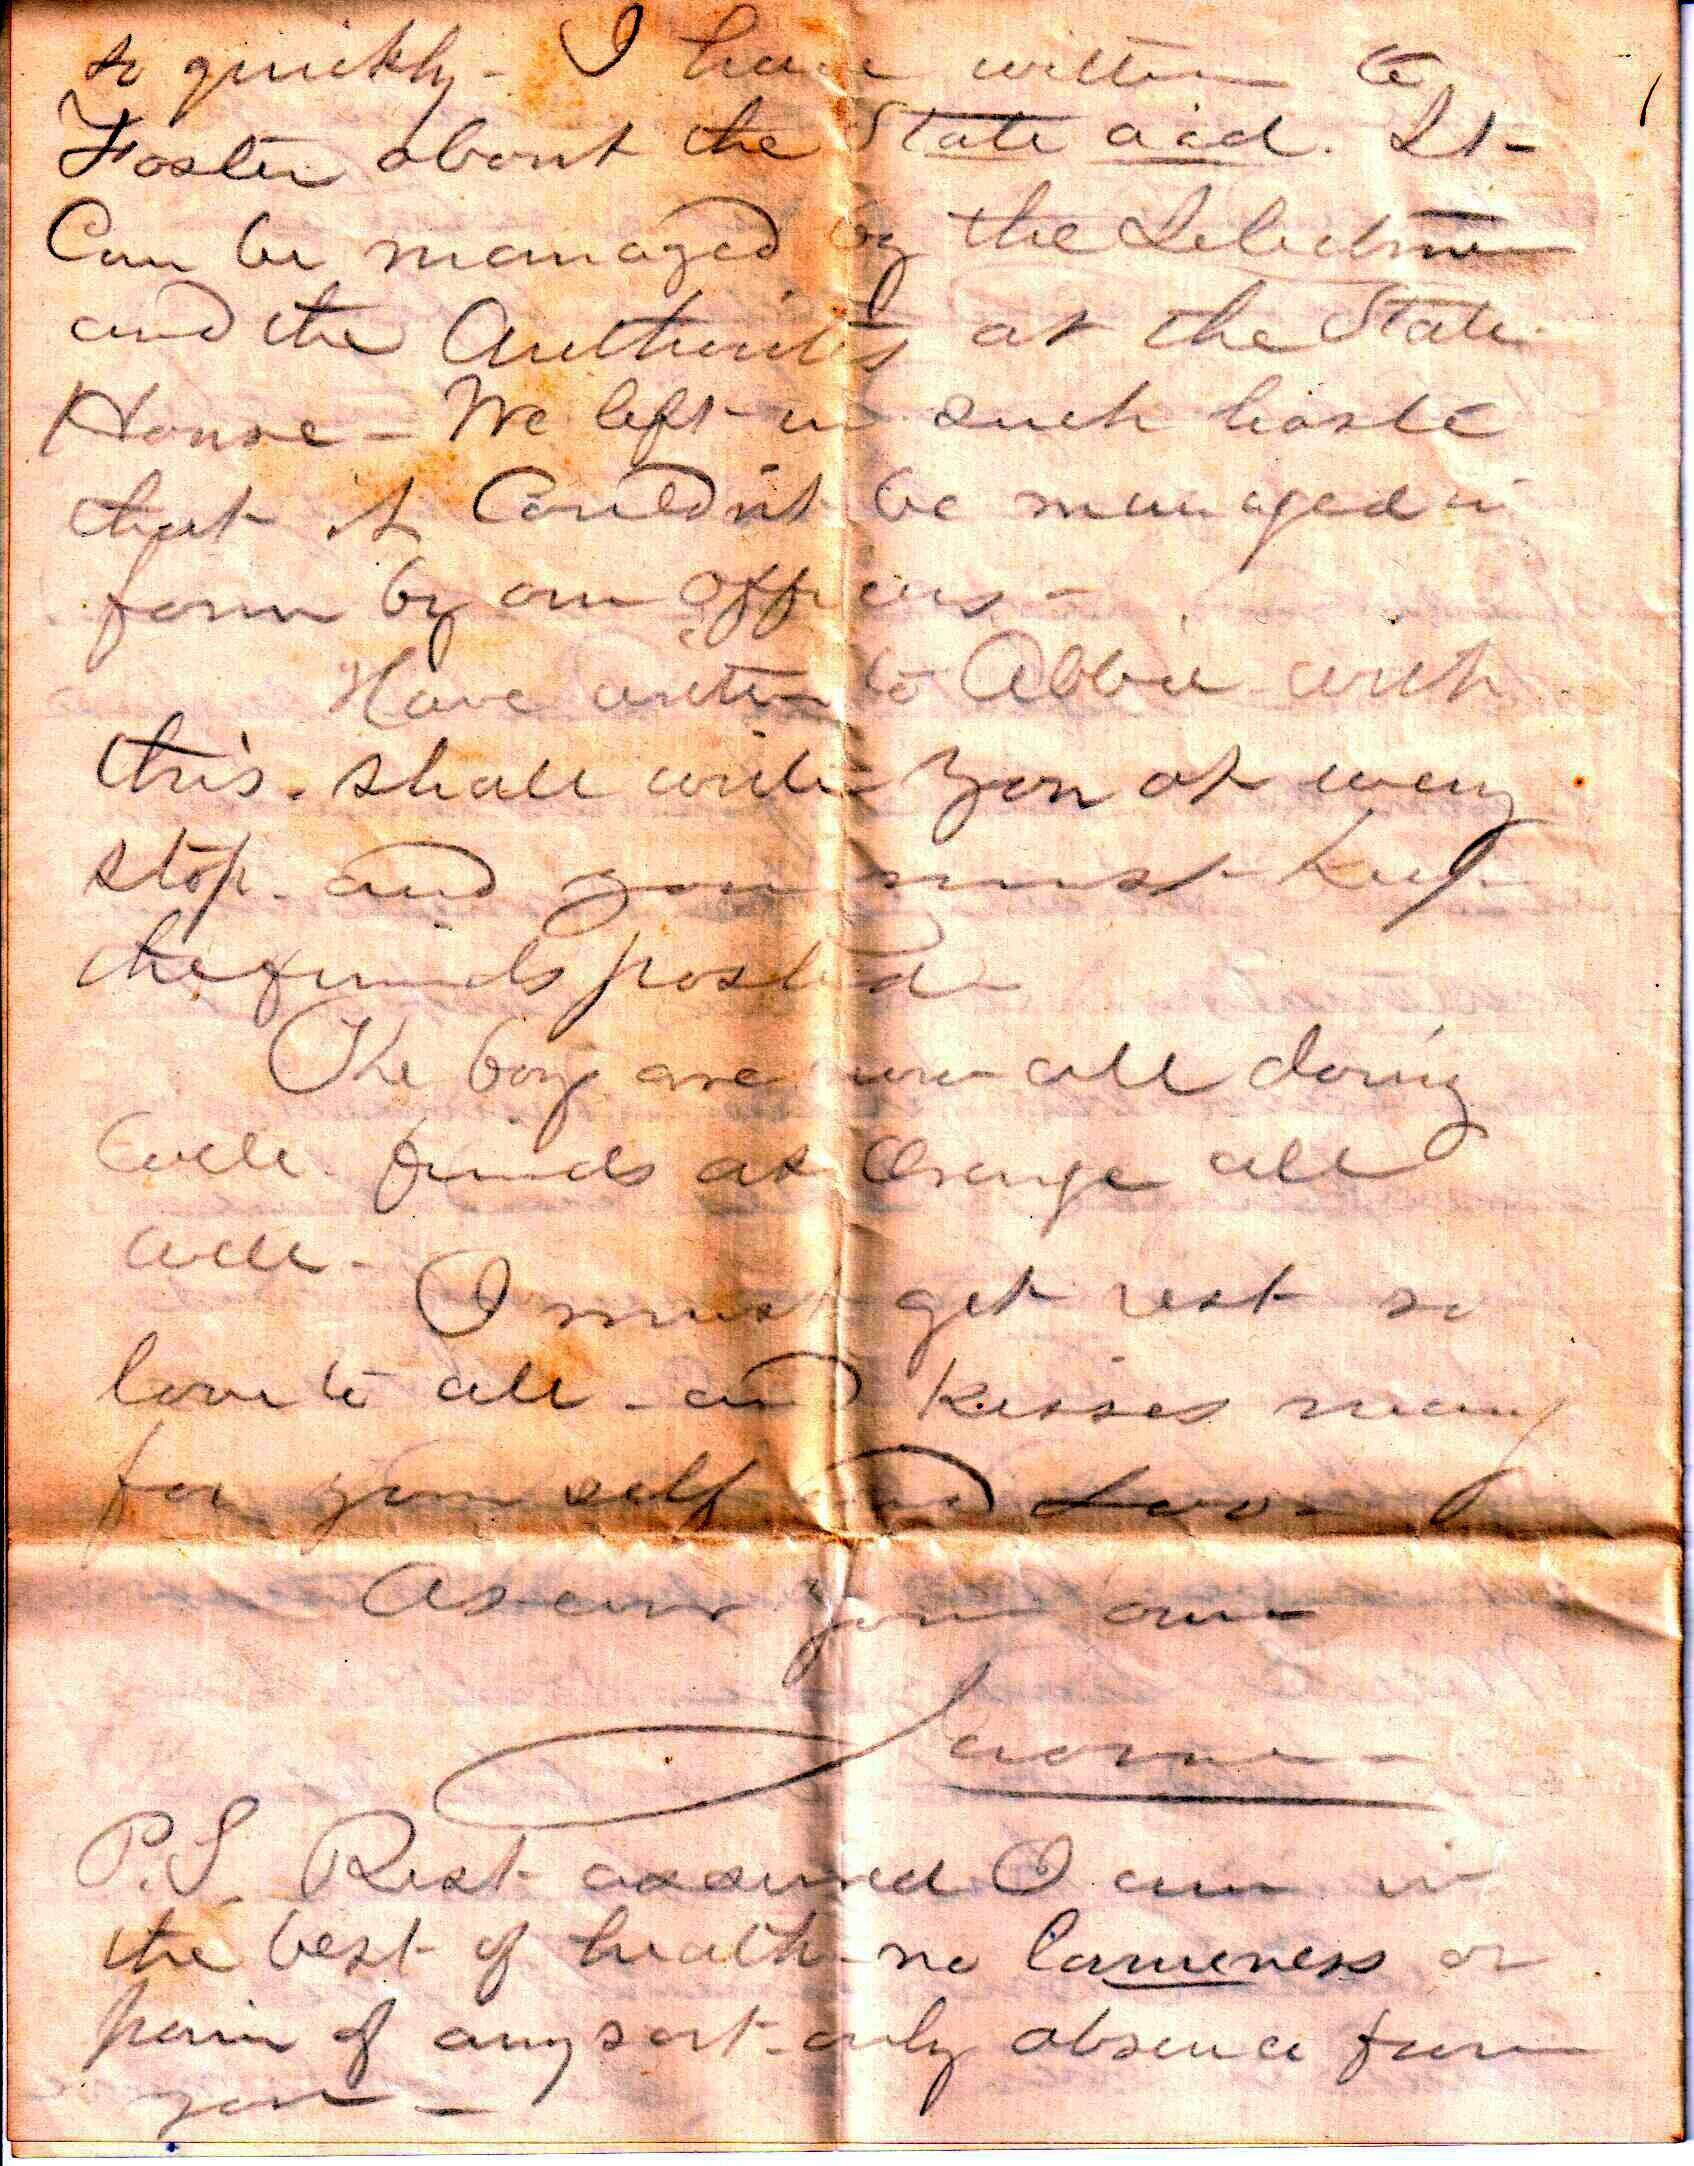 so quickly - I have written to
Foster about the State aid. It -
Can be managed by the Selectmen
and the Authorities at the State
House - We left in such haste
that it Couldn't be managed in
form by our officers -
Have written to Abbie with
this. shall write you at every
stop. and you must keep
the friends posted -
The boys are now all doing
well. friends at Orange all
well -
I must get rest so
love to all - and kisses many
for yourself and
As ever your own
P.S. Rest assured I am in
the best of health - no lameness or
pain of any sort - only absence from
you -